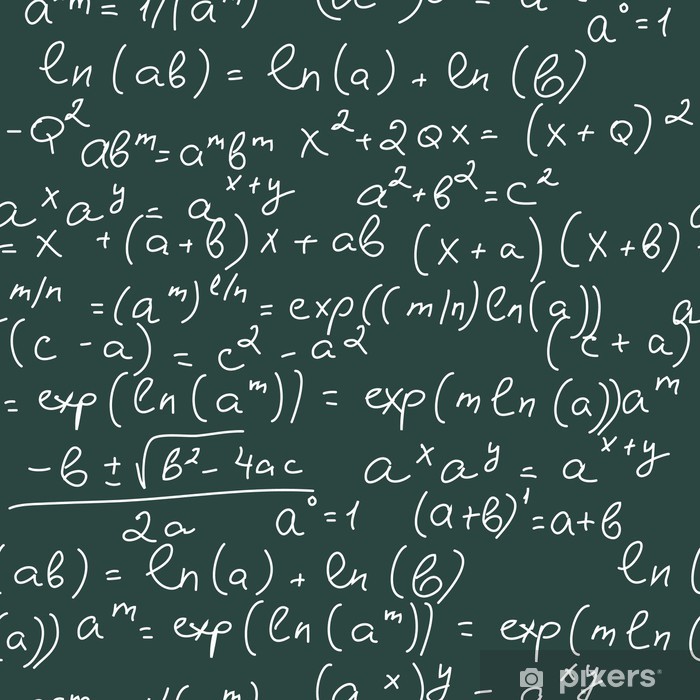 a^m = 1/(a^m)
a° = 1
ln(ab) = ln(a) + ln(b)
-Q² ab^m = a^m b^m x² + 2Qx = (x + Q)²
a^x a^y = a^(x+y) a² + b² = c²
= x + (a+b)x + ab (x + a)(x + b)
m/n = (a^m)^(l/n) = exp((m/n)ln(a)) a
(c - a) = c² - a² (c + a)
= exp(ln(a^m)) = exp(m ln(a)) a^m
-b ± √b² - 4ac a^x a^y = a^(x+y)
2a a° = 1 (a+b)¹ = a+b
(ab) = ln(a) + ln(b) ln(
(a)) a^m = exp(ln(a^m)) = exp(m ln(
(a^x)^y = a^xy
pixers